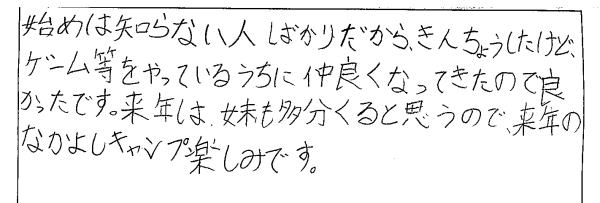 始めは知らない人ばかりだから、きんちょうしたけど、
ゲーム等をやっているうちに仲良くなってきたので良
かったです。来年は、妹も多分くると思うので、来年の
なかよしキャンプ楽しみです。